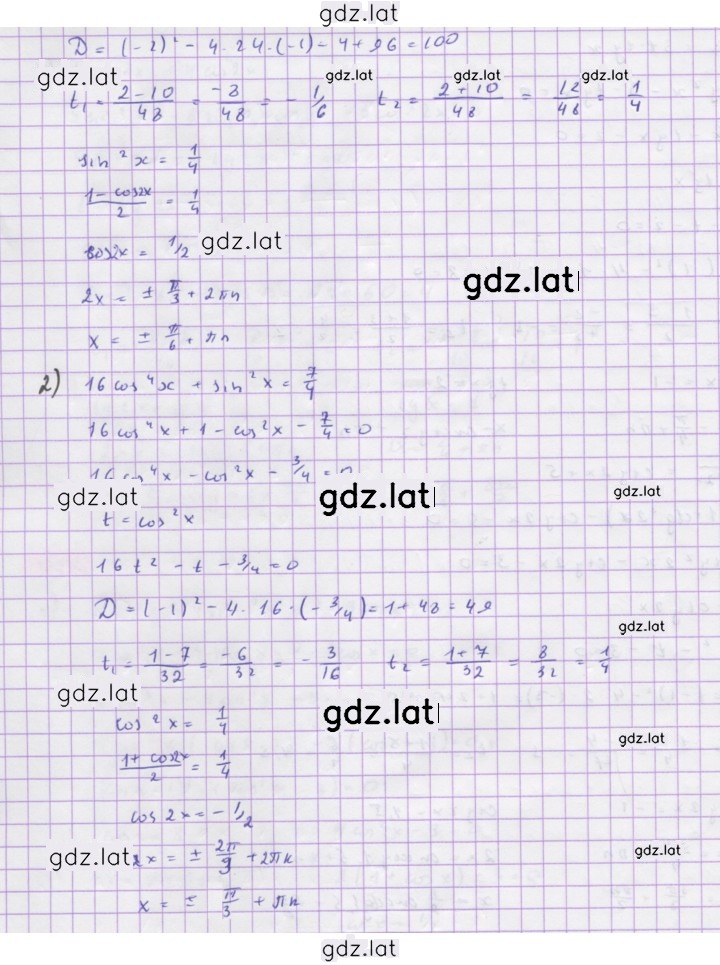 gdz.lat
D = (-2)² - 4·24·(-1) = 4 + 96 = 100
gdz.lat gdz.lat gdz.lat gdz.lat
t₁ = (2-10)/48 = -8/48 = -1/6 t₂ = (2+10)/48 = 12/48 = 1/4
sin²x = 1/4
(1-cos2x)/2 = 1/4
gdz.lat
cos2x = 1/2
gdz.lat
2x = ± π/3 + 2πn
x = ± π/6 + πn
2) 16cos⁴x + sin²x = 7/4
16cos⁴x + 1 - cos²x - 7/4 = 0
16cos⁴x - cos²x - 3/4 = 0
gdz.lat gdz.lat gdz.lat
t = cos²x
16t² - t - 3/4 = 0
D = (-1)² - 4·16·(-3/4) = 1 + 48 = 49
gdz.lat
t₁ = (1-7)/32 = -6/32 = -3/16 t₂ = (1+7)/32 = 8/32 = 1/4
gdz.lat gdz.lat
cos²x = 1/4
gdz.lat
(1+cos2x)/2 = 1/4
cos2x = -1/2
gdz.lat 2x = ± 2π/3 + 2πn gdz.lat
x = ± π/3 + πn
gdz.lat